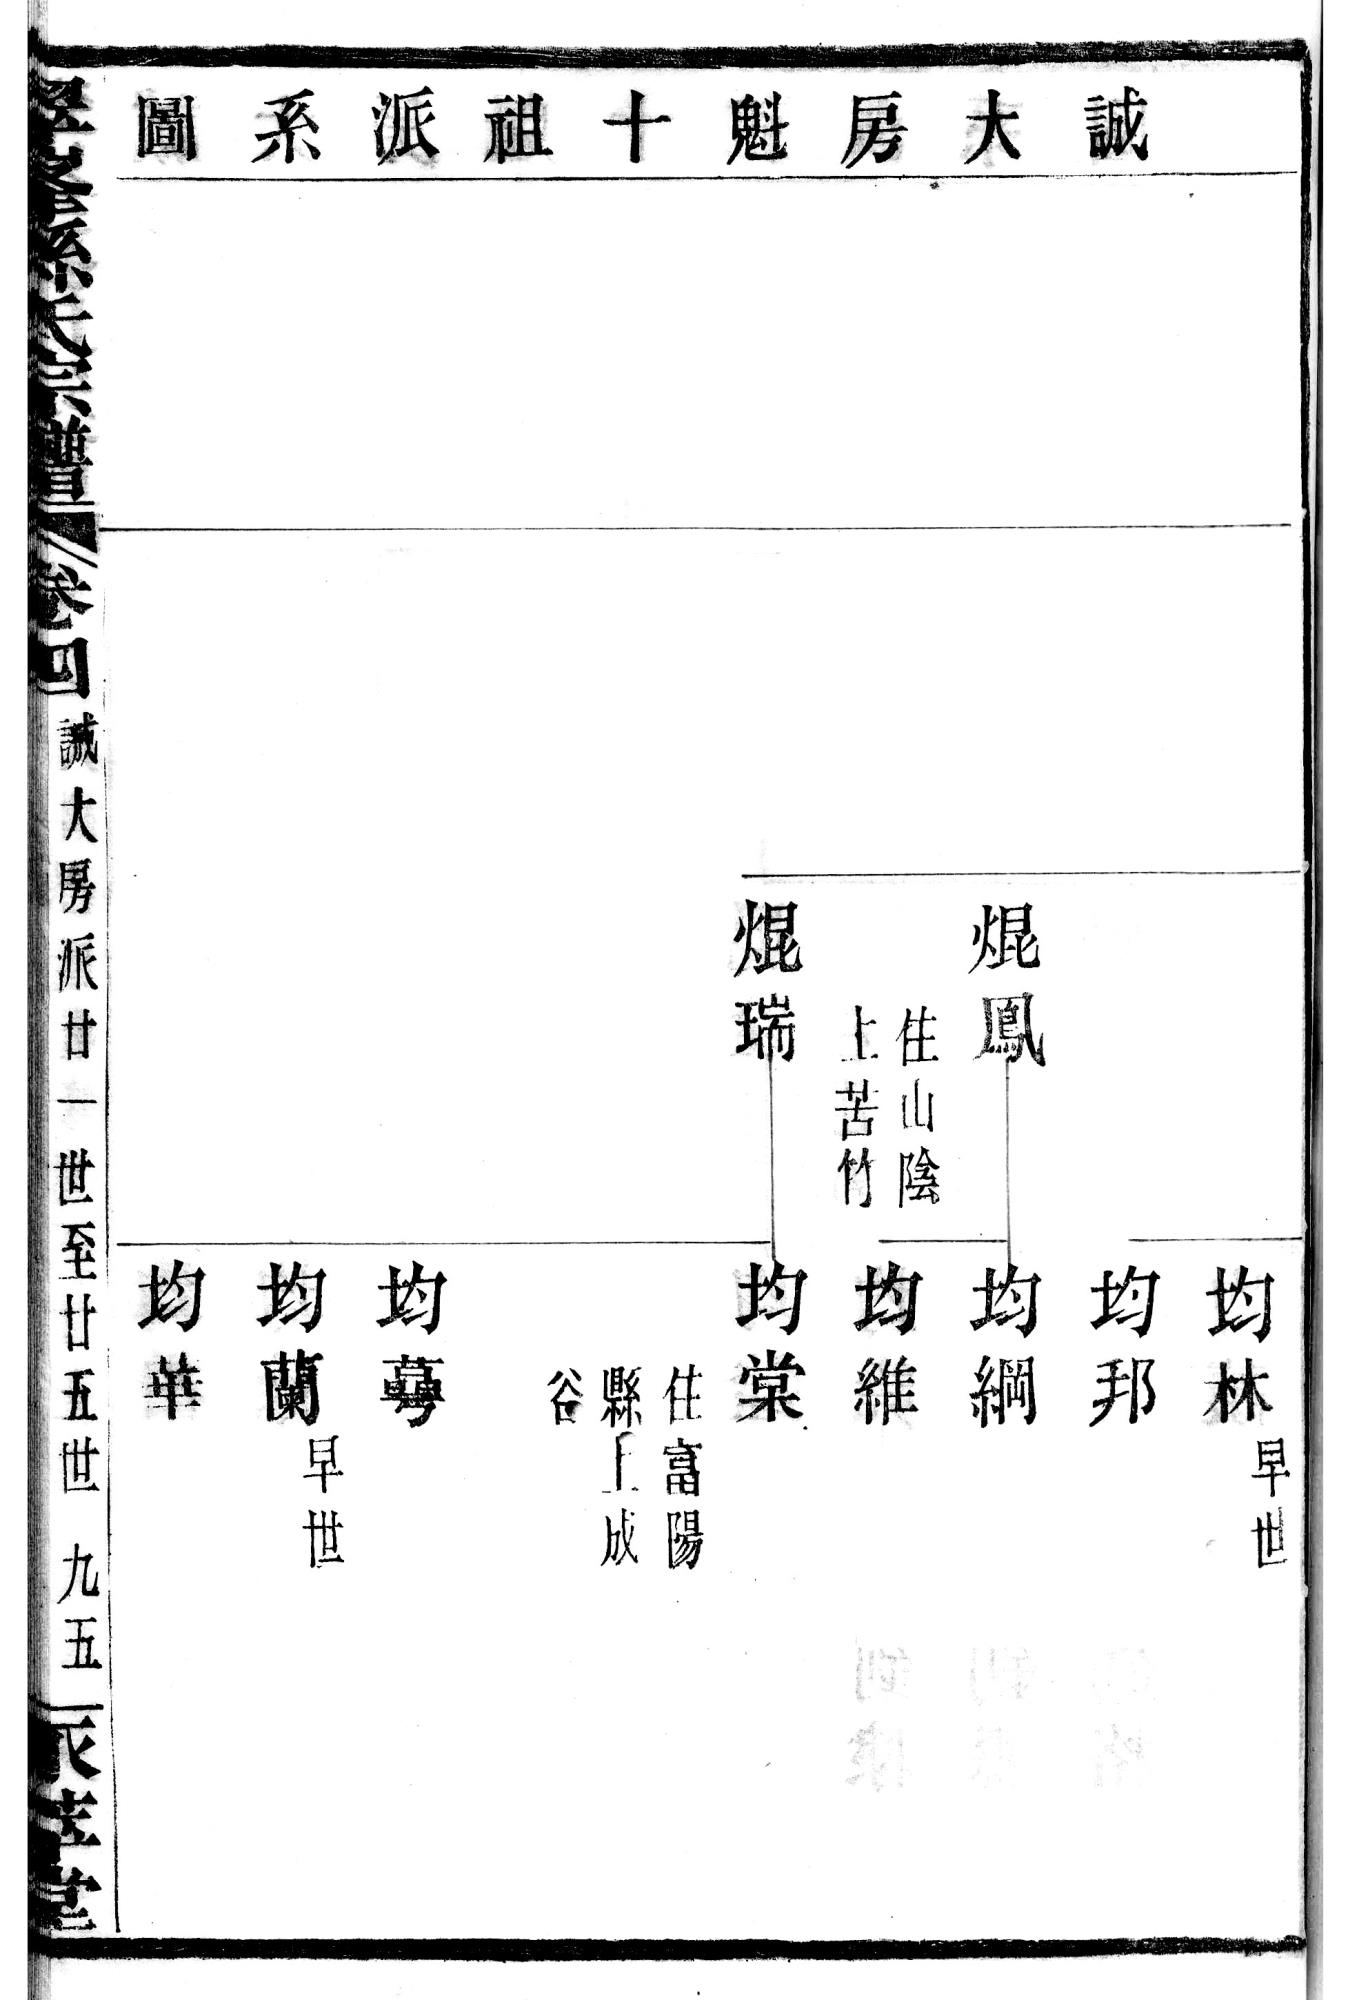 誠大房魁十祖派系圖
焜鳳
住山陰
上苦竹
焜瑞
均林
早世
均邦
均綱
均維
均棠
住富陽
縣上成
谷
均蕚
均蘭
早世
均華
孫氏宗譜
卷四
誠大房派廿一世至廿五世
九五